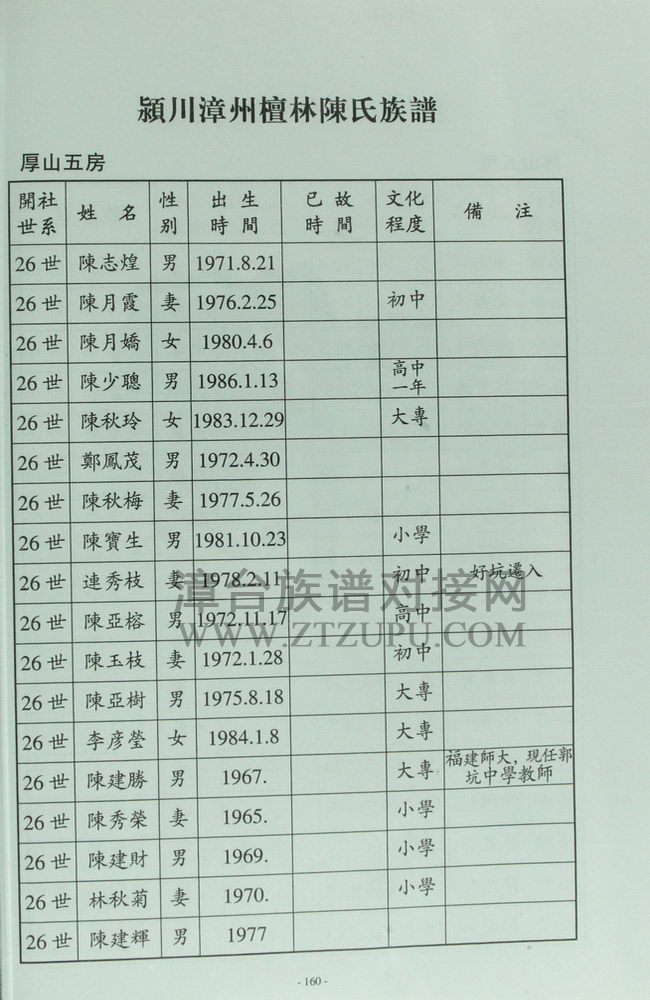 潁川漳州檀林陳氏族譜
厚山五房
開社世系 姓 名 性别 出生時間 已故時間 文化程度 備 注
26世 陳志煌 男 1971.8.21
26世 陳月霞 妻 1976.2.25 初中
26世 陳月嬌 女 1980.4.6
26世 陳少聰 男 1986.1.13 高中一年
26世 陳秋玲 女 1983.12.29 大專
26世 鄭鳳茂 男 1972.4.30
26世 陳秋梅 妻 1977.5.26
26世 陳寶生 男 1981.10.23 小學
26世 連秀枝 妻 1978.2.11 初中 好坑遷入
26世 陳亞榕 男 1972.11.17 高中
26世 陳玉枝 妻 1972.1.28 初中
26世 陳亞樹 男 1975.8.18 大專
26世 李彦瑩 女 1984.1.8 大專
26世 陳建勝 男 1967. 大專 福建師大,現任郭坑中學教師
26世 陳秀榮 妻 1965. 小學
26世 陳建財 男 1969. 小學
26世 林秋菊 妻 1970. 小學
26世 陳建輝 男 1977
漳台族谱对接网
WWW.ZTZUPU.COM
- 160 -